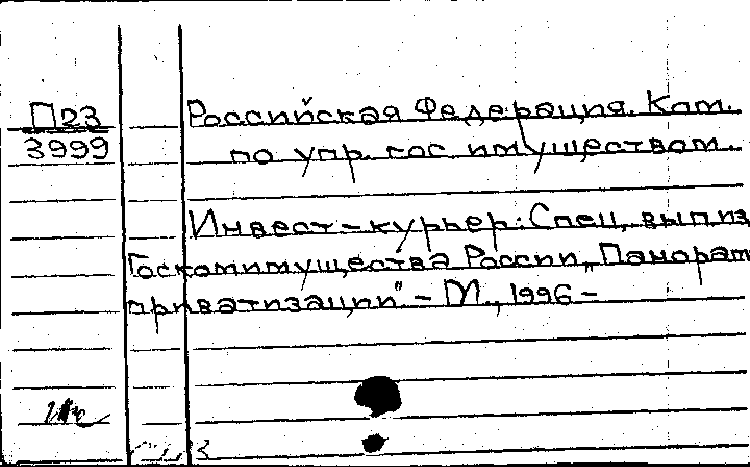 П23
3999
Российская Федерация. Ком.
по упр. гос. имуществом.
Инвест-курьер: Спец. вып. из
Госкомимущества России „Панорам
приватизации" - М., 1996 -